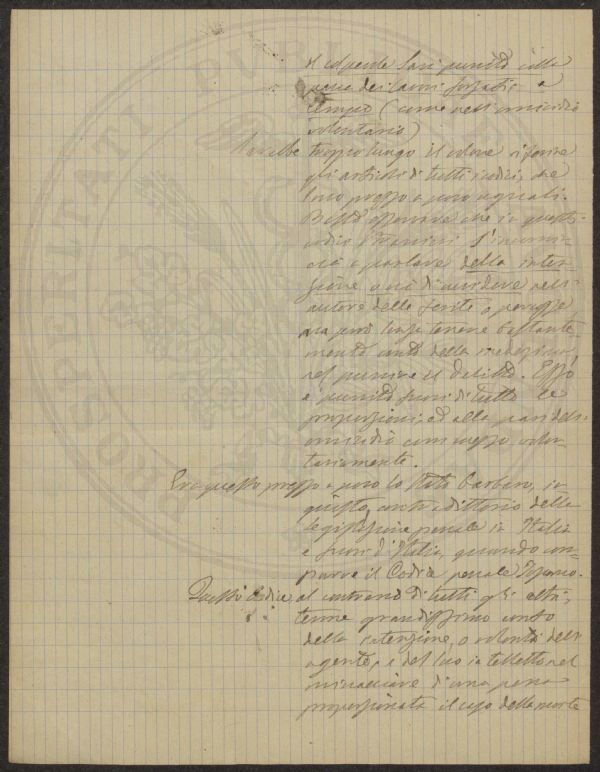 Il colpevole sarà punito colla
pena dei lavori forzati a
tempo (come nell'omicidio
volontario)
Sarebbe troppo lungo il volere riferire
gli articoli di tutti i codici, che
sono presso a poco uguali.
Basta osservare che in questi
codici s'incomin-
cia a parlare della inten-
zione o no di uccidere nell'
autore delle ferite o percosse,
ma però senza tenere bastante-
mente conto della medesima,
nel punire il delitto. Esso
è punito fuori di tutte le
proporzioni, ed alla pari dell'
omicidio commesso volon-
tariamente.
Era questo presso a poco lo stato barbaro, in
questo, contradittorio della
legislazione penale in Italia
e fuori d'Italia, quando com-
parve il Codice penale Toscano.
Questo Codice, al contrario di tutti gli altri,
tenne grandissimo conto
della intenzione, o volontà dell'
agente, e del suo intelletto nel
minacciare d'una pena
proporzionata il caso della morte
PROSPERITATI PUBLICAE